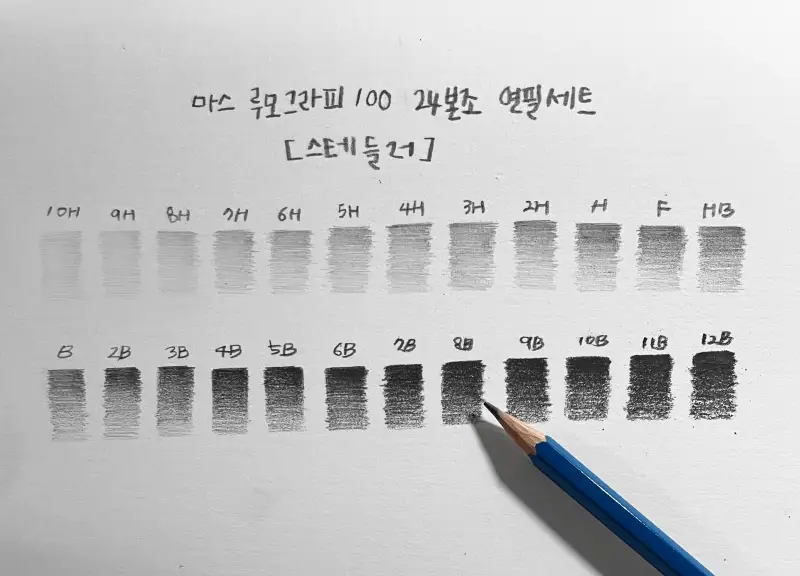 마스 루모그라피 100 24본조 연필세트
[스테들러]
10H 9H 8H 7H 6H 5H 4H 3H 2H H F HB
B 2B 3B 4B 5B 6B 7B 8B 9B 10B 11B 12B